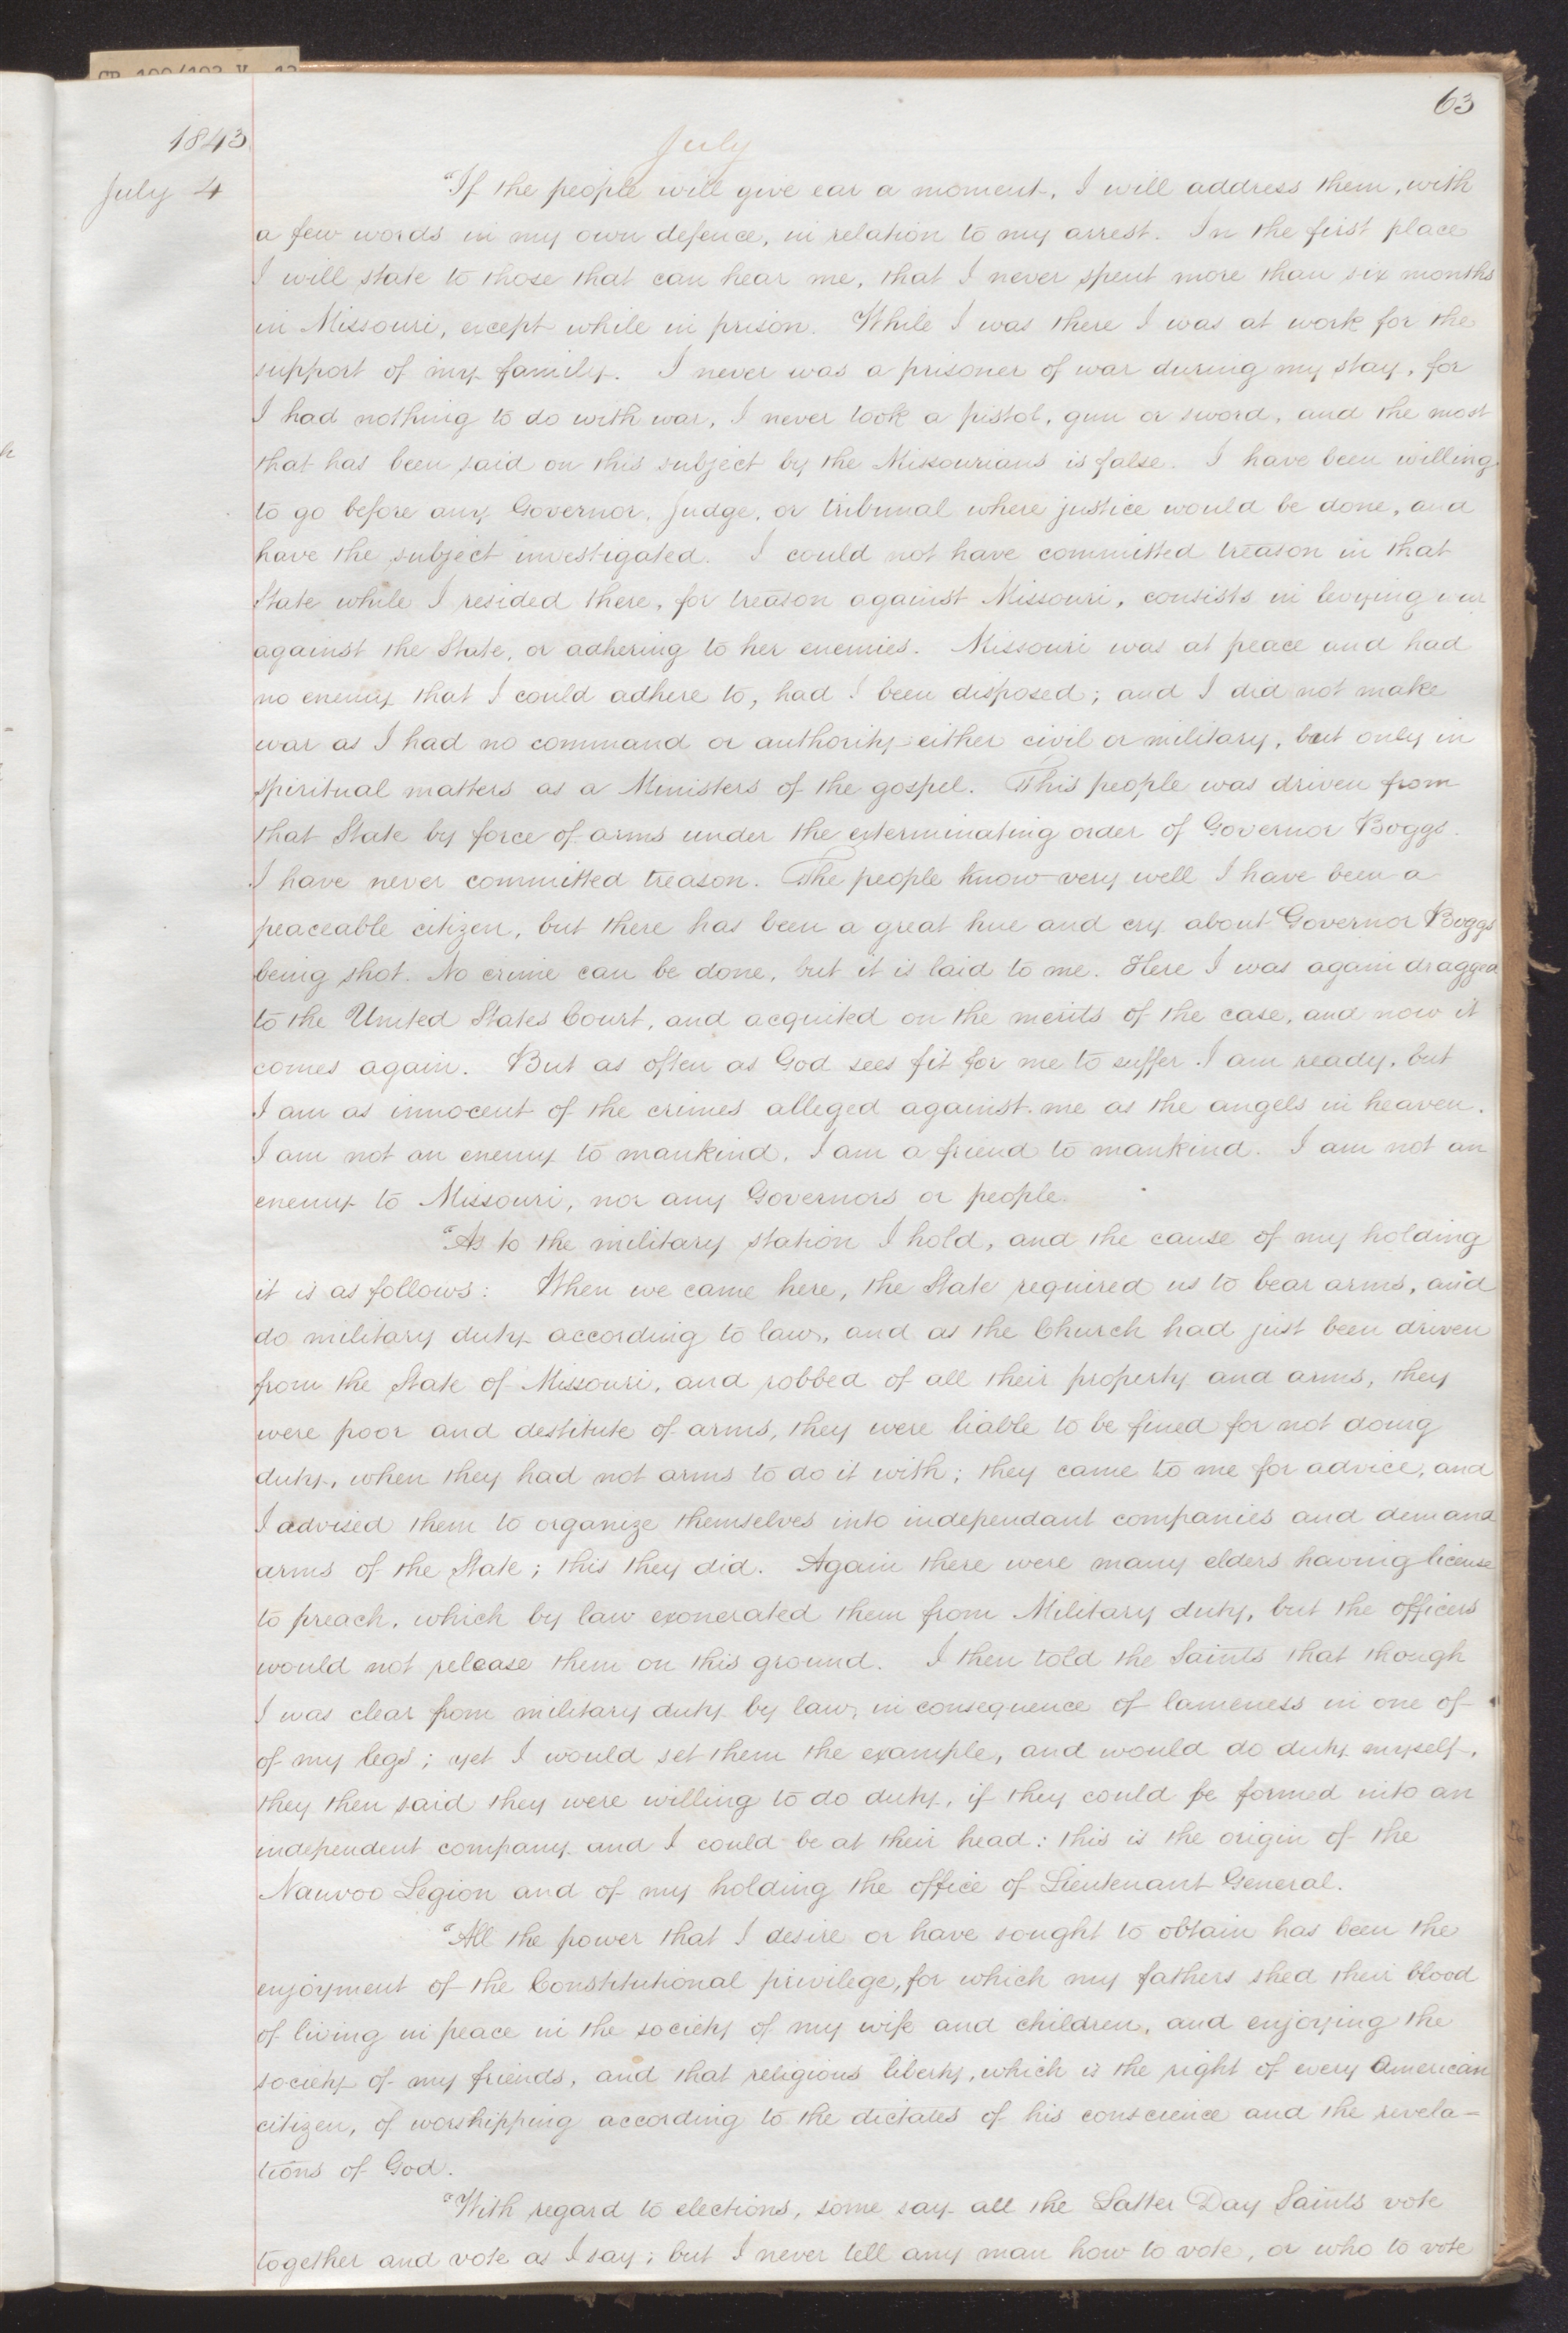 63
1843
July
July 4
"If the people will give ear a moment, I will address them, with
a few words in my own defence, in relation to my arrest. In the first place
I will state to those that can hear me, that I never spent more than six months
in Missouri, except while in prison. While I was there I was at work for the
support of my family. I never was a prisoner of war during my stay, for
I had nothing to do with war, I never took a pistol, gun or sword, and the most
that has been said on this subject by the Missourians is false. I have been willing
to go before any Governor, Judge, or tribunal where justice would be done, and
have the subject investigated. I could not have committed treason in that
State while I resided there, for treason against Missouri, consists in levying war
against the State, or adhering to her enemies. Missouri was at peace and had
no enemy that I could adhere to, had I been disposed; and I did not make
war as I had no command or authority either civil or military, but only in
spiritual matters as a Ministers of the gospel. This people was driven from
that State by force of arms under the exterminating order of Governor Boggs.
I have never committed treason. The people know very well I have been a
peaceable citizen, but there has been a great hue and cry about Governor Boggs
being shot. No crime can be done, but it is laid to me. Here I was again dragged
to the United States Court, and acquited on the merits of the case, and now it
comes again. But as often as God sees fit for me to suffer I am ready, but
I am as innocent of the crimes alleged against me as the angels in heaven.
I am not an enemy to mankind, I am a friend to mankind. I am not an
enemy to Missouri, nor any Governors or people.
"As to the military station I hold, and the cause of my holding
it is as follows: When we came here, the State required us to bear arms, and
do military duty according to law, and as the Church had just been driven
from the State of Missouri, and robbed of all their property and arms, they
were poor and destitute of arms, they were liable to be fined for not doing
duty, when they had not arms to do it with; they came to me for advice, and
I advised them to organize themselves into independant companies and demand
arms of the State; this they did. Again there were many elders having license
to preach, which by law exonerated them from Military duty, but the officers
would not release them on this ground. I then told the Saints that though
I was clear from military duty by law, in consequence of lameness in one of
of my legs; yet I would set them the example, and would do duty myself,
they then said they were willing to do duty, if they could be formed into an
independent company and I could be at their head: this is the origin of the
Nauvoo Legion and of my holding the office of Lieutenant General.
"All the power that I desire or have sought to obtain has been the
enjoyment of the Constitutional privilege, for which my fathers shed their blood
of living in peace in the society of my wife and children, and enjoying the
society of my friends, and that religious liberty, which is the right of every American
citizen, of worshipping according to the dictates of his conscience and the revela-
tions of God.
"With regard to elections, some say all the Latter Day Saints vote
together and vote as I say; but I never tell any man how to vote, or who to vote